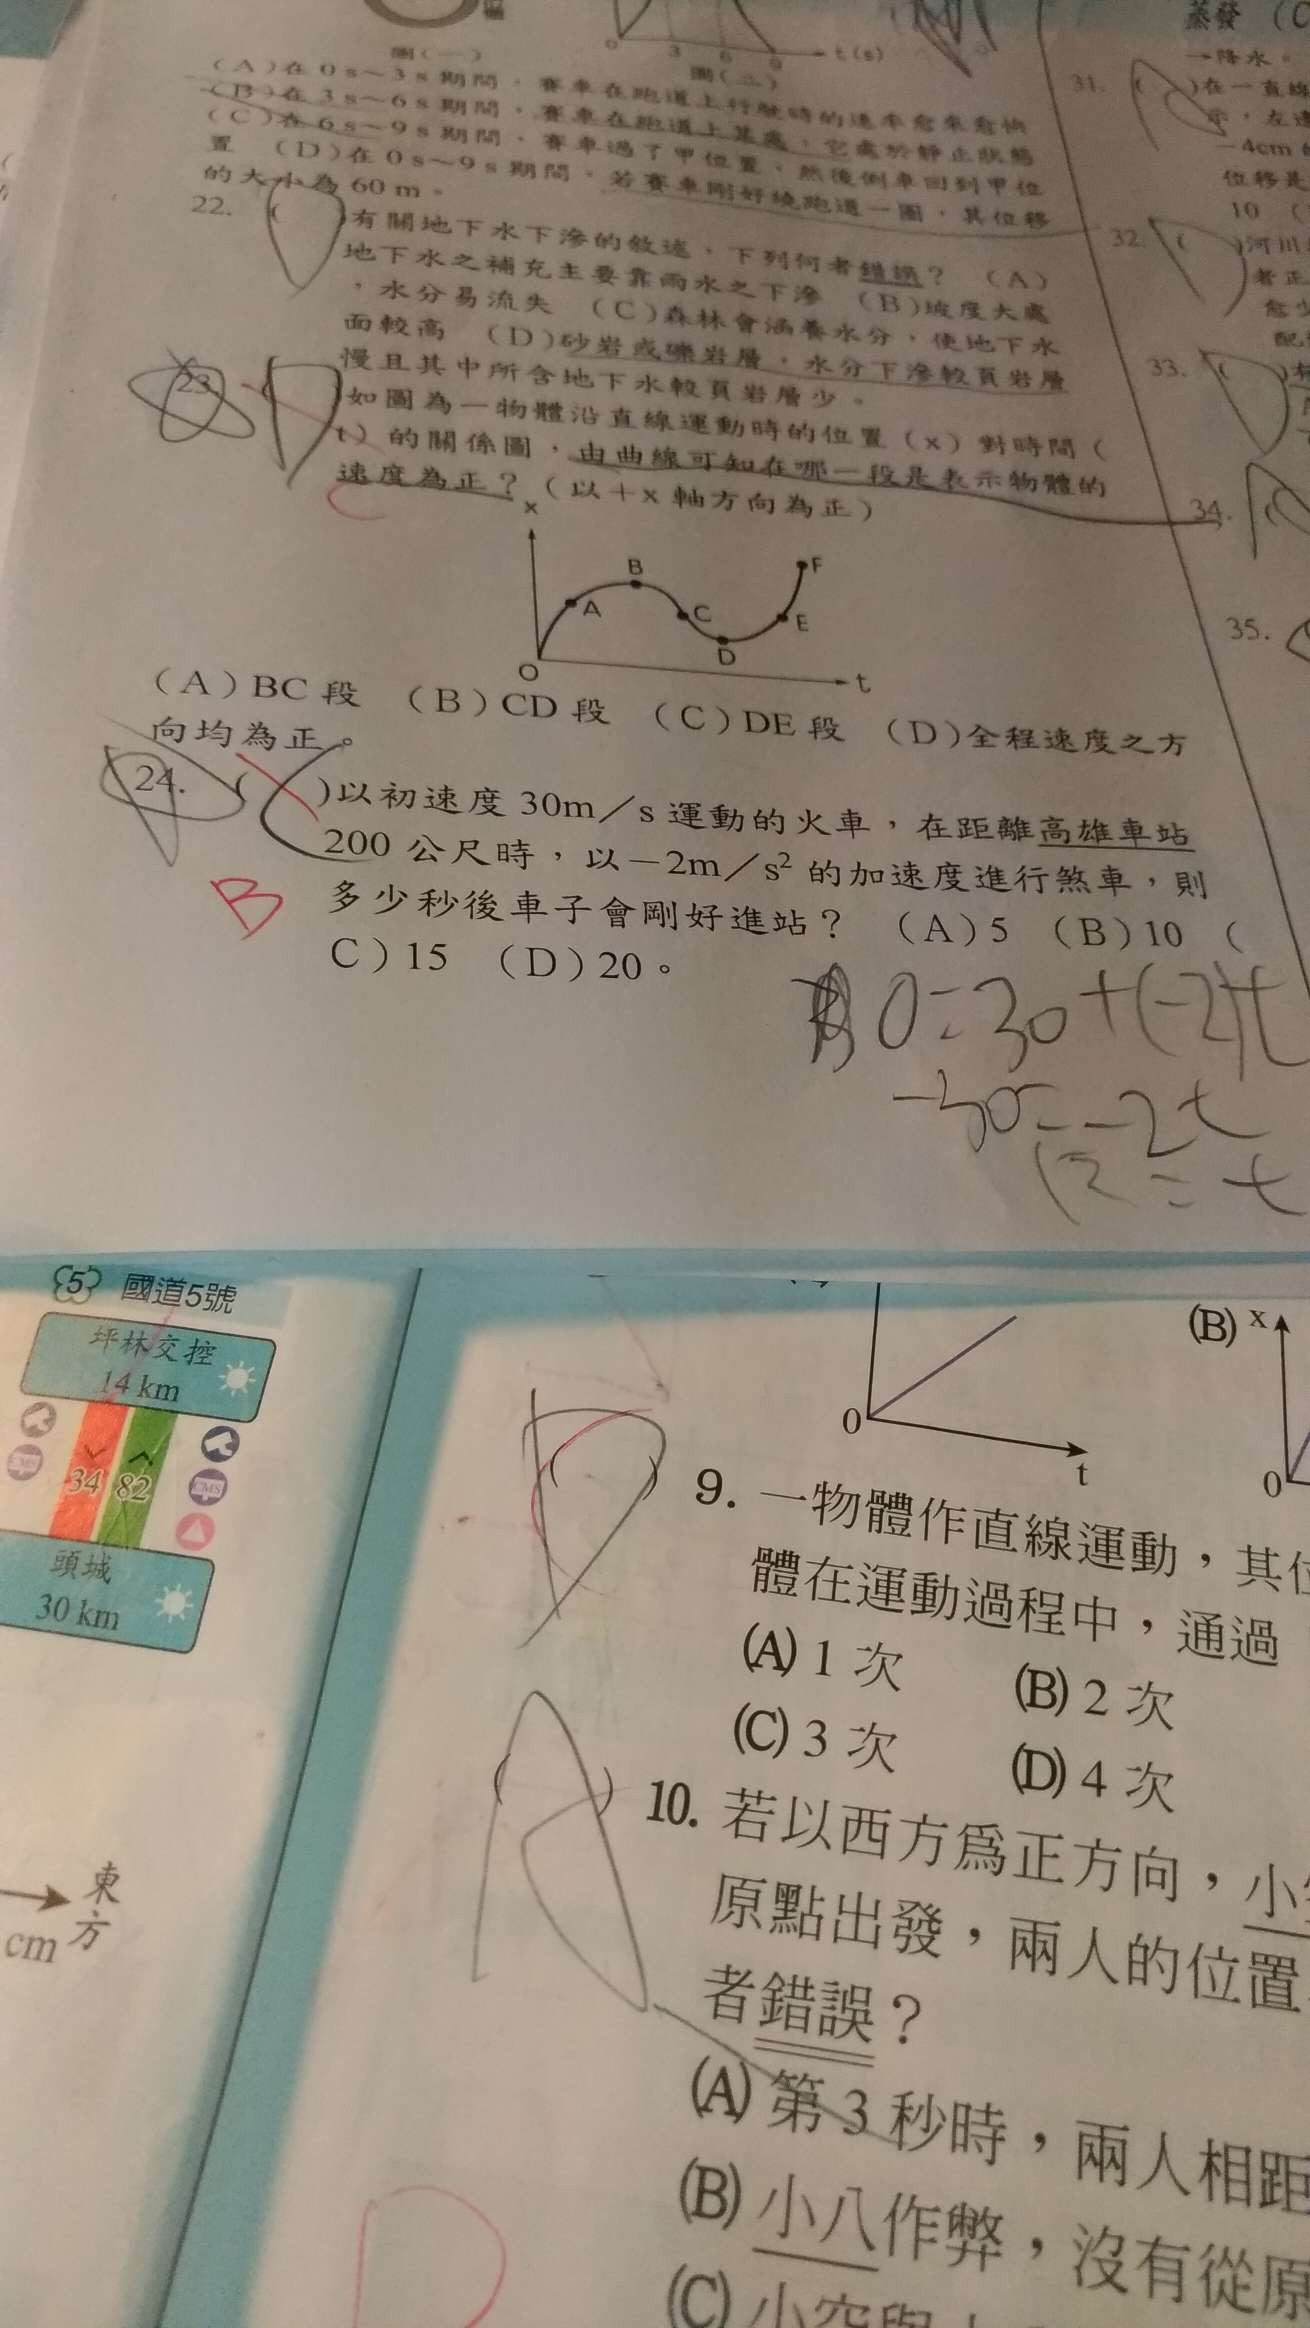 圖(一)
0 3 6 9 t(s)
圖(二)
(A)在 0 s～3 s 期間，賽車在跑道上行駛時的速率愈來愈快
(B)在 3 s～6 s 期間，賽車在跑道上某處，它處於靜止狀態
(C)在 6 s～9 s 期間，賽車過了甲位置，然後倒車回到甲位
置 (D)在 0 s～9 s 期間，若賽車剛好繞跑道一圈，其位移
的大小為 60 m。
22. ( )有關地下水下滲的敘述，下列何者錯誤？ (A)
地下水之補充主要靠雨水之下滲 (B)坡度大處
，水分易流失 (C)森林會涵養水分，使地下水
面較高 (D)砂岩或礫岩層，水分下滲較頁岩層
慢且其中所含地下水較頁岩層少。
23. ( )如圖為一物體沿直線運動時的位置（x）對時間（
t）的關係圖，由曲線可知在哪一段是表示物體的
速度為正？（以＋x 軸方向為正）
C
x
B
F
A
C
E
D
O
t
(A)BC 段 (B)CD 段 (C)DE 段 (D)全程速度之方
向均為正。
24. ( )以初速度 30m／s 運動的火車，在距離高雄車站
200 公尺時，以－2m／s² 的加速度進行煞車，則
多少秒後車子會剛好進站？ (A)5 (B)10 (
C)15 (D)20。
B
0=30+(-2)t
-30=-2t
蒸發 (C
一降水。
31. ( )在一直線
示，左邊
－4cm
位移是
10 (
32. ( )河川
者正
愈少
配
33. (
34. (
35.
5 國道5號
坪林交控
14 km
34 82
CMS
CMS
頭城
30 km
東方
cm
0
t
(B) x
0
( ) 9. 一物體作直線運動，其位
體在運動過程中，通過
(A) 1 次 (B) 2 次
(C) 3 次 (D) 4 次
( ) 10. 若以西方爲正方向，小
原點出發，兩人的位置
者錯誤？
(A) 第 3 秒時，兩人相距
(B) 小八作弊，沒有從原
(C) 小空與